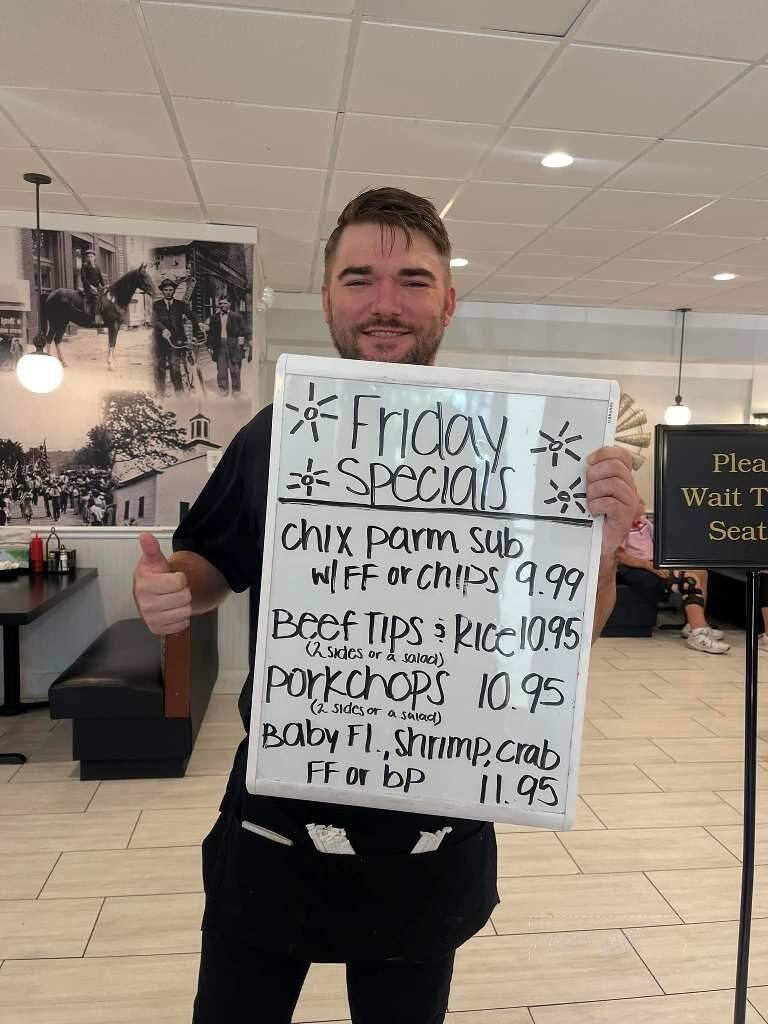 Friday
Specials
Chix parm sub
w/ FF or chips 9.99
Beef Tips & Rice 10.95
(2 sides or a salad)
porkchops 10.95
(2 sides or a salad)
Baby Fl., shrimp, crab
FF or bp 11.95
Plea
Wait T
Seat